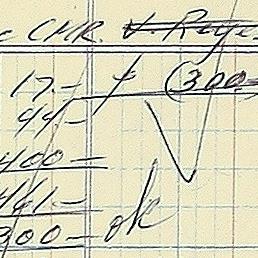 CHR. J. Reye
17.- (300-
44-
400-
461-
300- ok